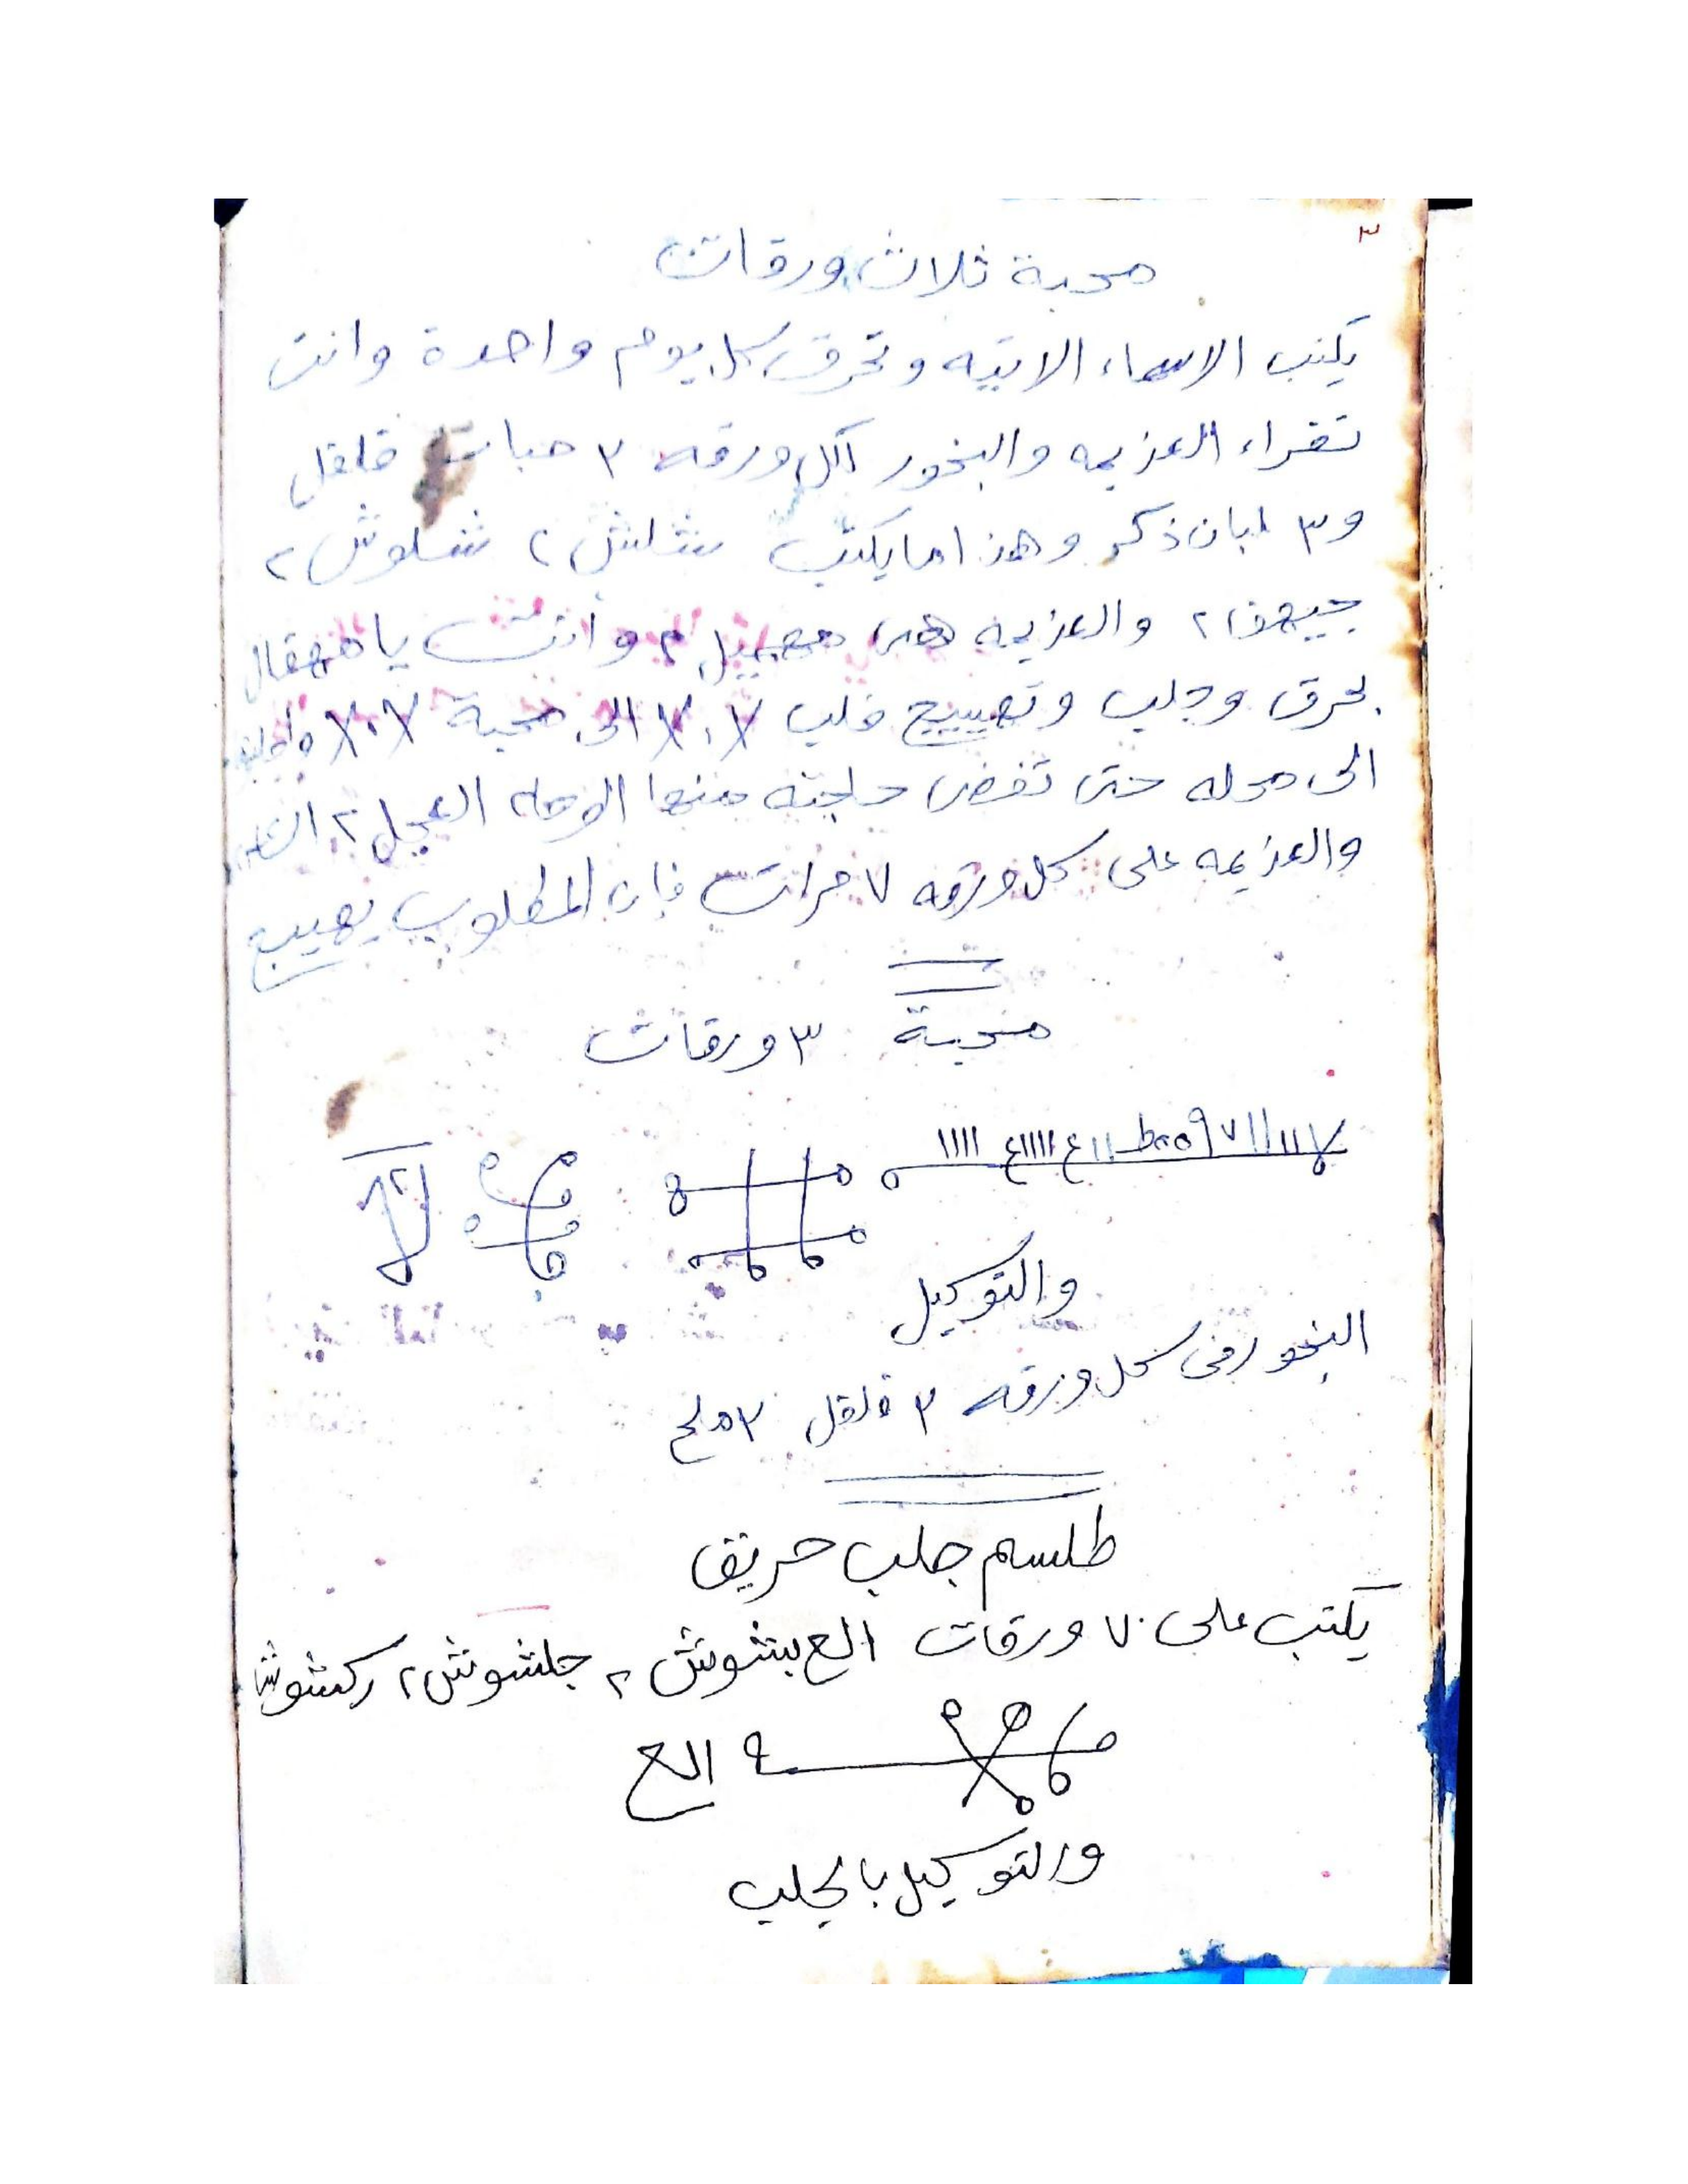 ٣
محبة ثلاث ورقات
يكتب الاسماء الاتيه وتحرق كل يوم واحدة وانت
تقراء العزيمه والبخور لكل ورقه ٣ حبات فلفل
و٣ لبان ذكر وهذا مايكتب شلش ٢ شلوش ٢
جيهف ٢ والعزيمه هى مهييل ٢ وانت يا مهقال
بحرق وجلب وتهييج قلب الى محبة
الى محله حتى تقضى حاجته منها الوحا العجل ٢
والعزيمه على كل ورقه ٧ مرات فان المطلوب يهيج
محبة ٣ ورقات
والتوكيل
البخور فى كل ورقه ٣ فلفل ٣ ملح
طلسم جلب حريق
يكتب على ٧ ورقات الع بشوش ٢ جلشوش ٢ ركشوش
الع
ولتوكيل بالجلب